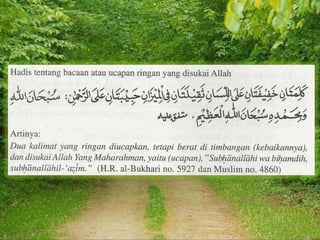 Hadis tentang bacaan atau ucapan ringan yang disukai Allah
كَلِمَتَانِ خَفِيفَتَانِ عَلَى اللِّسَانِ ثَقِيلَتَانِ فِي الْمِيْزَانِ حَبِيْبَتَانِ عَلَى الرَّحْمٰنِ: سُبْحَانَ اللهِ
وَبِحَمْدِهِ سُبْحَانَ اللهِ الْعَظِيْمِ.
Artinya:
Dua kalimat yang ringan diucapkan, tetapi berat di timbangan (kebaikannya),
dan disukai Allah Yang Maharahman, yaitu (ucapan), "Subḥānallāhi wa biḥamdih,
subḥānallāhil-'aẓīm." (H.R. al-Bukhari no. 5927 dan Muslim no. 4860)